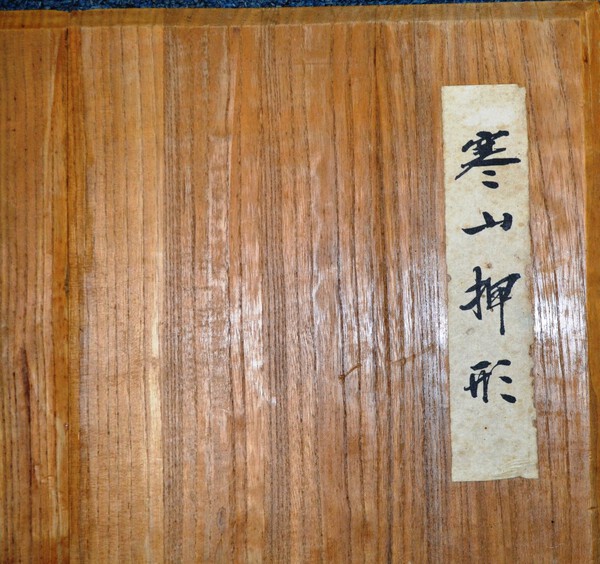 寒山押形